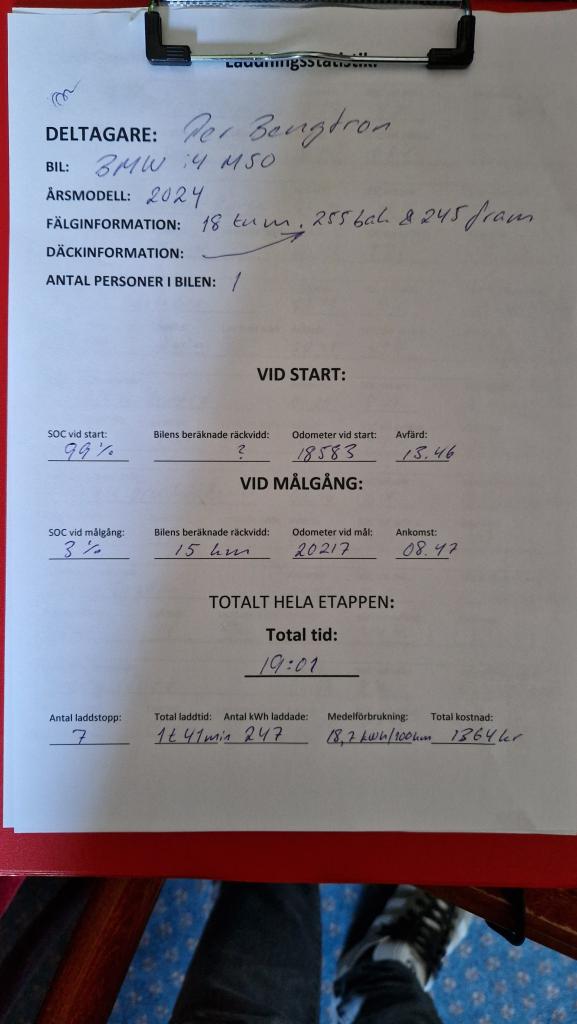 Laddningsstatistik:
DELTAGARE: Per Bengtron
BIL: BMW i4 M50
ÅRSMODELL: 2024
FÄLGINFORMATION: 18 tum. 255 bak & 245 fram
DÄCKINFORMATION:
ANTAL PERSONER I BILEN: 1
VID START:
SOC vid start: Bilens beräknade räckvidd: Odometer vid start: Avfärd:
99 % ? 18583 13.46
VID MÅLGÅNG:
SOC vid målgång: Bilens beräknade räckvidd: Odometer vid mål: Ankomst:
3 % 15 km 20217 08.47
TOTALT HELA ETAPPEN:
Total tid:
19:01
Antal laddstopp: Total laddtid: Antal kWh laddade: Medelförbrukning: Total kostnad:
7 1t 41min 247 18,7 kWh/100km 1364 kr